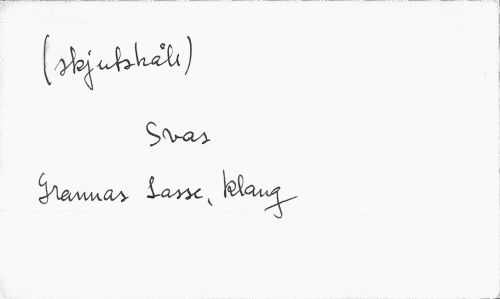 (skjutskåli)
Svas
Grannas Lasse, klang